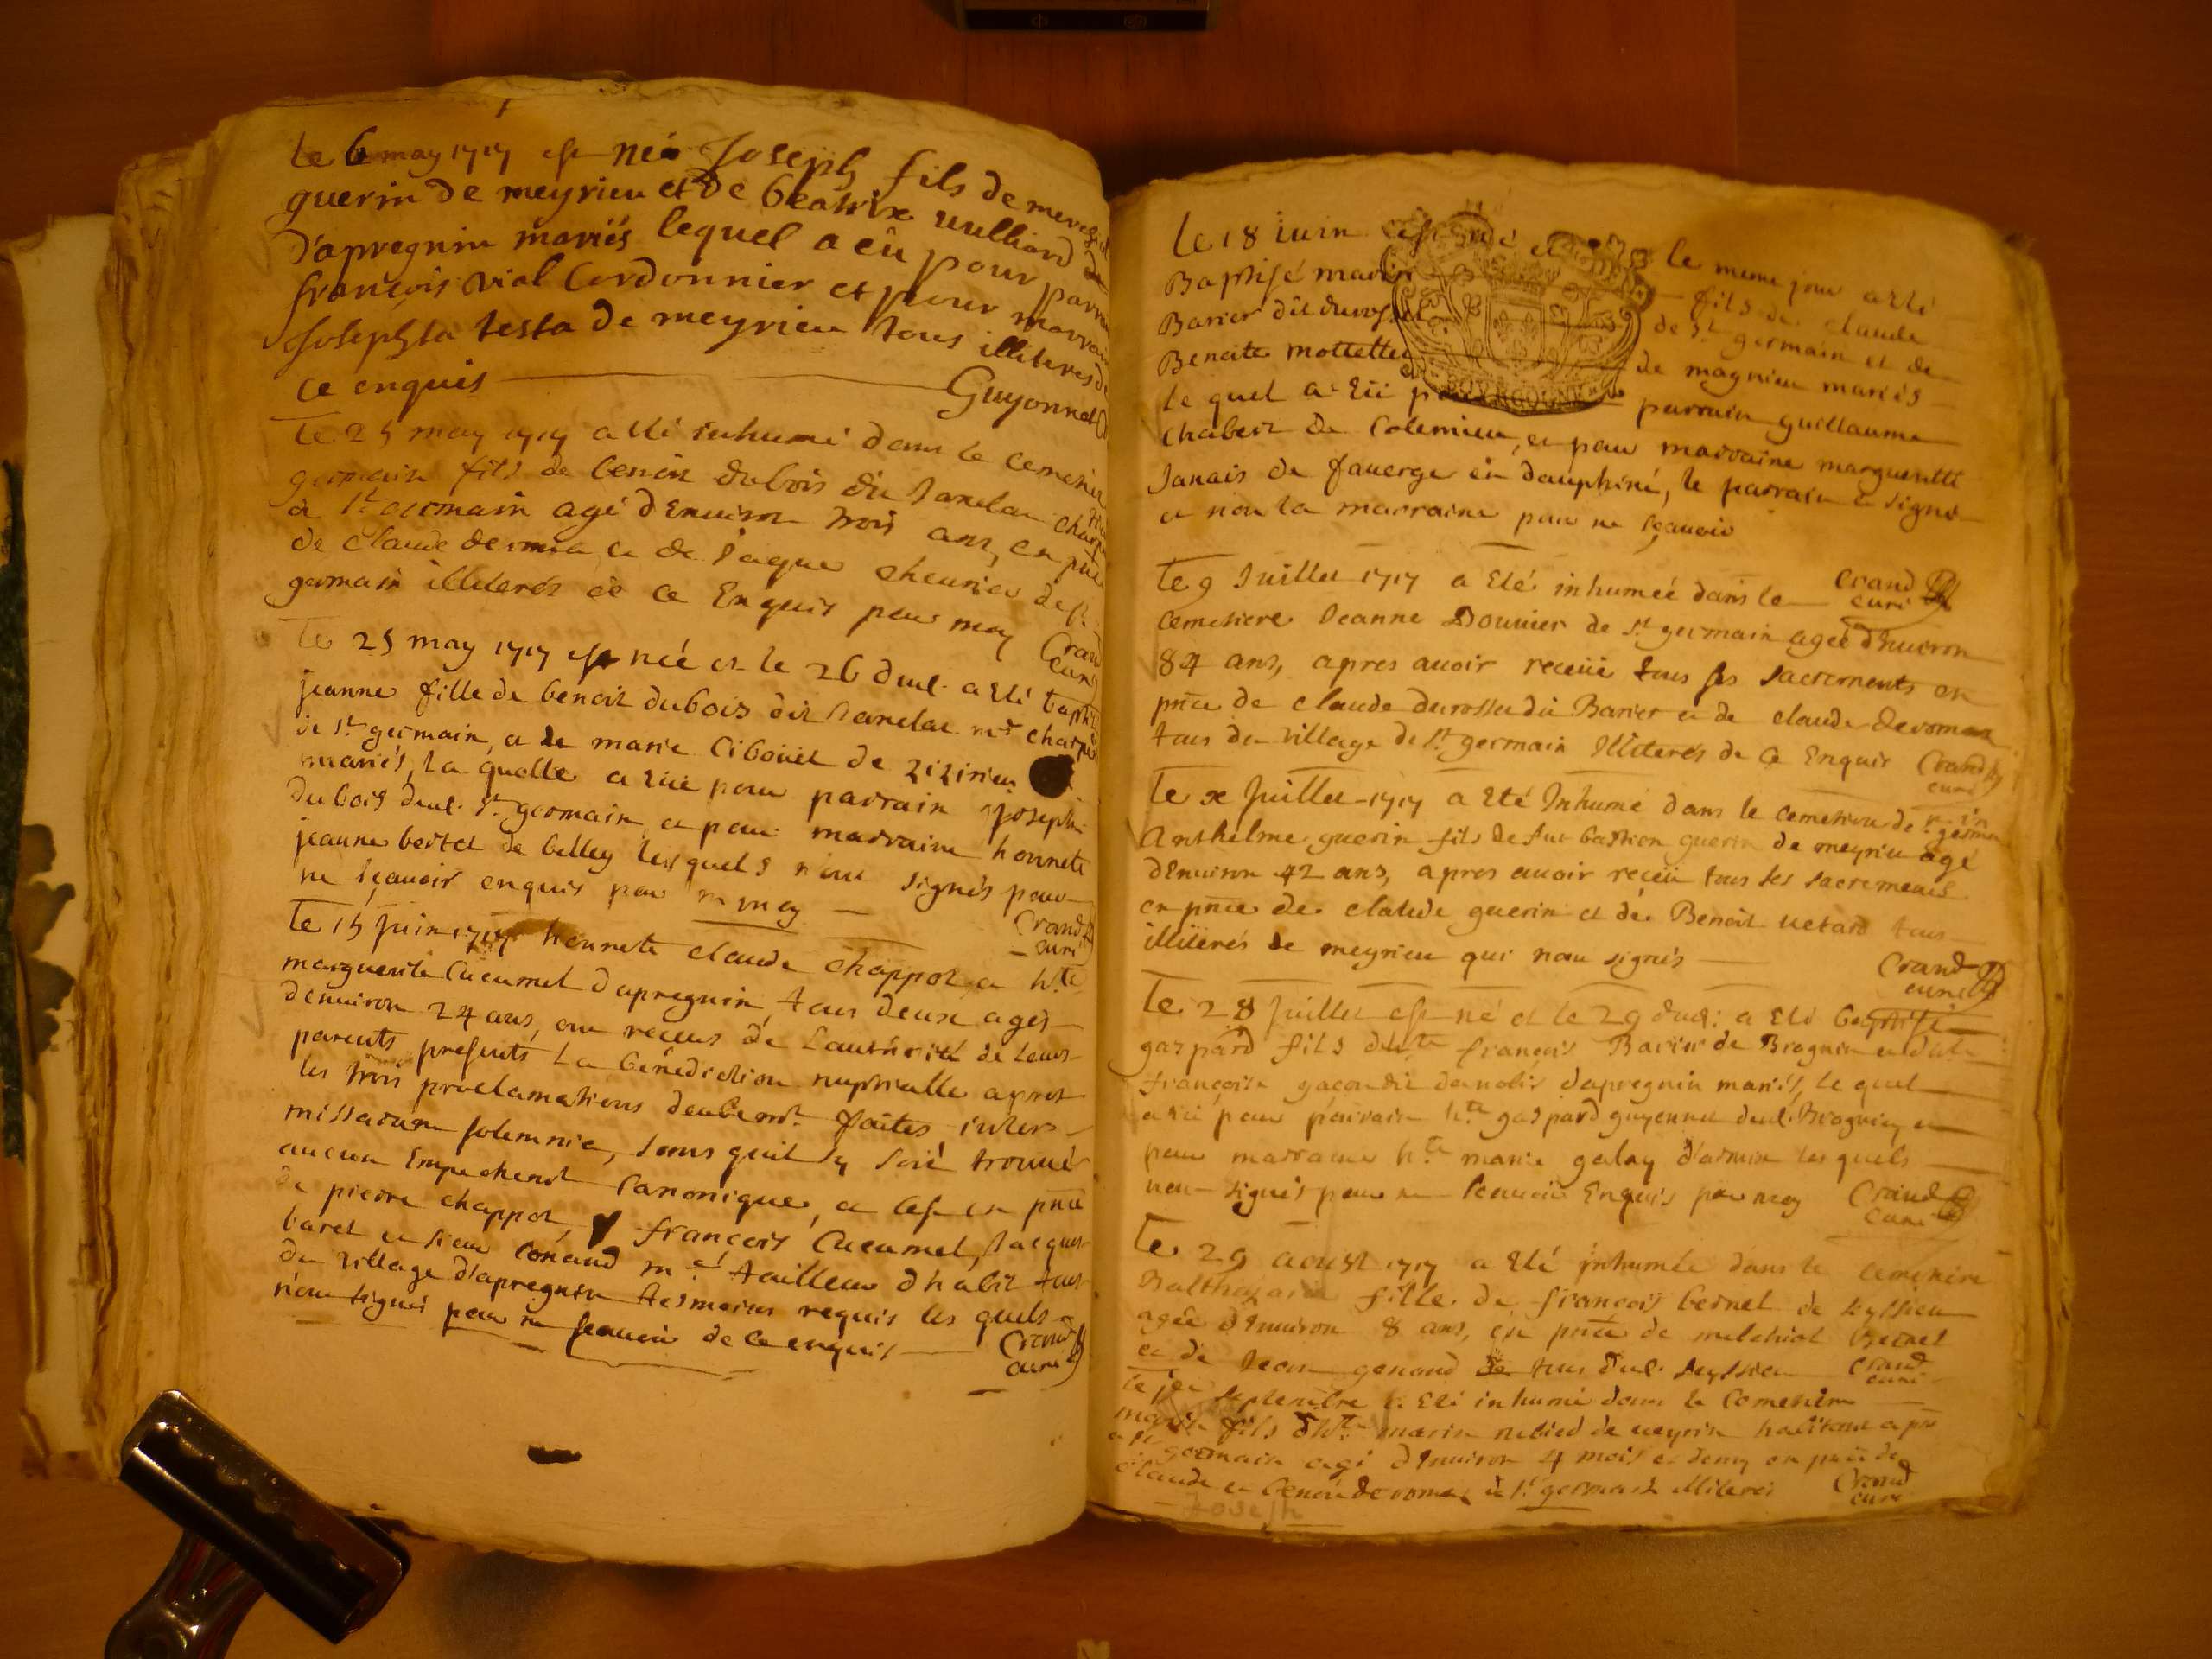 le 6 may 1717 est né Joseph fils de
guerin de meyrieu et de beatrix vulliard de
d'apregnin mariés lequel a eû pour parrain
françois vial Cordonnier et pour marraine
Josephta testa de meyrieu tous illiteres de
ce enquis Guyonnet
Le 25 may 1717 a eté inhumé dans le cemetiere
germain fils de benoit dubois dit Janelas
a st germain agé d'Environ trois ans, en pnce
de claude devoma et de Jaque chevrier de st
germain illiterés de ce Enquis par moy Crand
curé
Le 25 may 1717 est née et le 26 dud. a eté baptisée
jeanne fille de benoit dubois dit Janelas mre charp
de st germain, et de marie Cibouet de
mariés, la quelle a eüe pour parrain joseph
dubois dud. st germain, et pour marraine honnete
jeanne bertet de belley lesquels n'ont signés pour
ne sçavoir enquis par moy
Crand
curé
Le 15 juin 1717 honnete claude chappot et h.te
marguerite Cucumel d'apregnin, tous deux agés
d'environ 24 ans, ont receus de L'authorité de leurs
parents presents La bénédiction nuptialle apres
les trois proclamations deubemt. faites, inter
missarum solemnia, sans quil sy soit trouué
aucun Empechemt Canonique, et cest en pnce
de pierre chappot, françois Cucumel, Jacques
baret et Conand m.e tailleur d'habit tous
du village d'apregnin tesmoins requis les quels
n'ont signés pour ne sçauoir de ce enquis Crand
curé
Le 18 iuin est né et le meme jour a eté
Baptisé fils de claude
Barier dit durosset de st germain et de
Benoite mottettes de magnieu mariés
le quel a eü pour parrain guillaume
chabert de Colemieu, et pour marraine margueritte
Janais de faverge en dauphiné, le parrain a signé
et non la marraine pour ne sçauoir
Crand
curé
Le 9 Juillet 1717 a eté inhumée dans le
cemetiere Jeanne Bouvier de st germain agee d'Enuiron
84 ans, apres auoir receüe tous ses sacrements en
pnce de claude durosset dit Barier et de claude devoma
tous du village de st germain Illiterés de ce Enquis Crand
curé
Le x Juillet 1717 a eté Inhumé dans le cemetiere de st germain
Anthelme guerin fils de feu bastien guerin de meyrieu agé
d'Enuiron 42 ans, apres auoir receu tous ses sacrements
en pnce de claude guerin et de Benoit vetard tous
illiterés de meyrieu qui nont signés
Crand
curé
Le 28 Juillet est né et le 29 dud: a eté baptisé
gaspard fils d'h.te françois Barier de Brognin et d'h.te
françoise gacon dit danolis d'apregnin mariés, le quel
a eü pour parrain h.te gaspard guyonnet dud. Brognin, et
pour marraine h.te marie galay d'armix les quels
nont signés pour ne sçauoir Enquis par moy Crand
curé
Le 29 aoust 1717 a eté inhumée dans le cemetiere
Balthazarde fille de françois bernet de seyssieu
agée d'Enuiron 8 ans, en pnce de melchiot bernet
et de Jean genoud tous dud. seyssieu Crand
curé
le septembre a eté inhumé dans le Cemetiere
fils d'h.te marin de veyrin habitant a pnt
a st germain agé d'Enuiron 4 mois et demy en pnce de
Claude et benoit devoma de st germain illiterés Crand
curé
Joseph